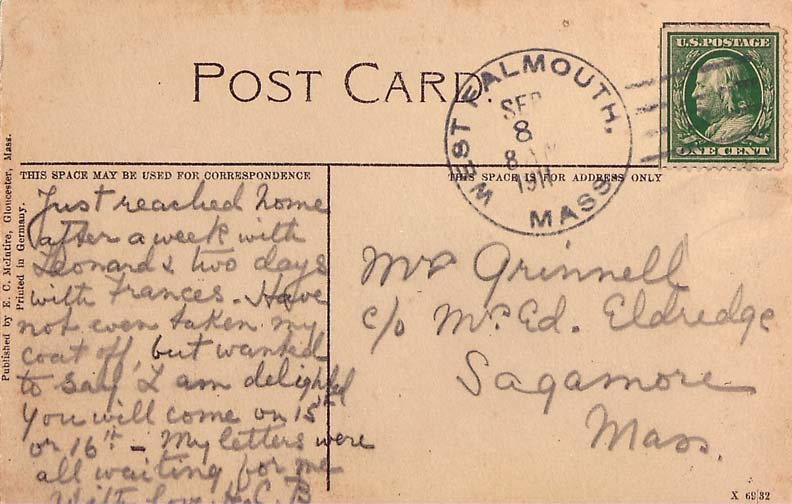 POST CARD.
WEST FALMOUTH, MASS.
SEP
8
8 AM
191
U.S. POSTAGE
ONE CENT
THIS SPACE MAY BE USED FOR CORRESPONDENCE
THIS SPACE IS FOR ADDRESS ONLY
Published by E. C. McIntire, Gloucester, Mass.
Printed in Germany.
Just reached home
after a week with
Leonard & two days
with Frances. Have
not even taken my
coat off, but wanted
to say I am delighted
you will come on 15th
or 16th – My letters were
all waiting for me
With love. H.C.B
Mrs Grinnell
c/o Mr. Ed. Eldredge
Sagamore
Mass.
X 6932